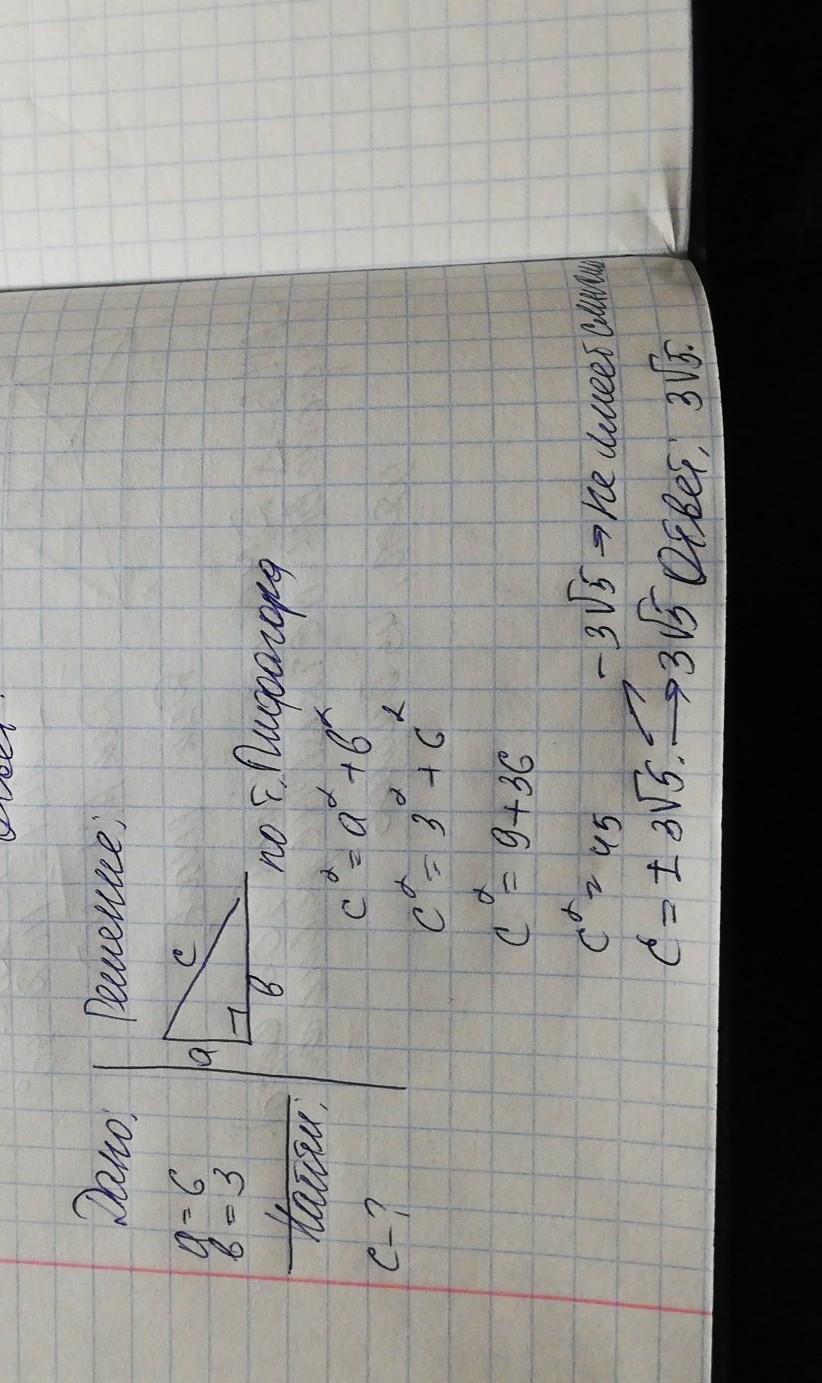 Дано:
a = 6
b = 3
Найти:
c - ?
Решение:
a
c
b
по т. Пифагора
c² = a² + b²
c² = 3² + 6²
c² = 9 + 36
c² = 45
c = ± 3√5. → 3√5
- 3√5 → не имеет смысла
Ответ: 3√5.